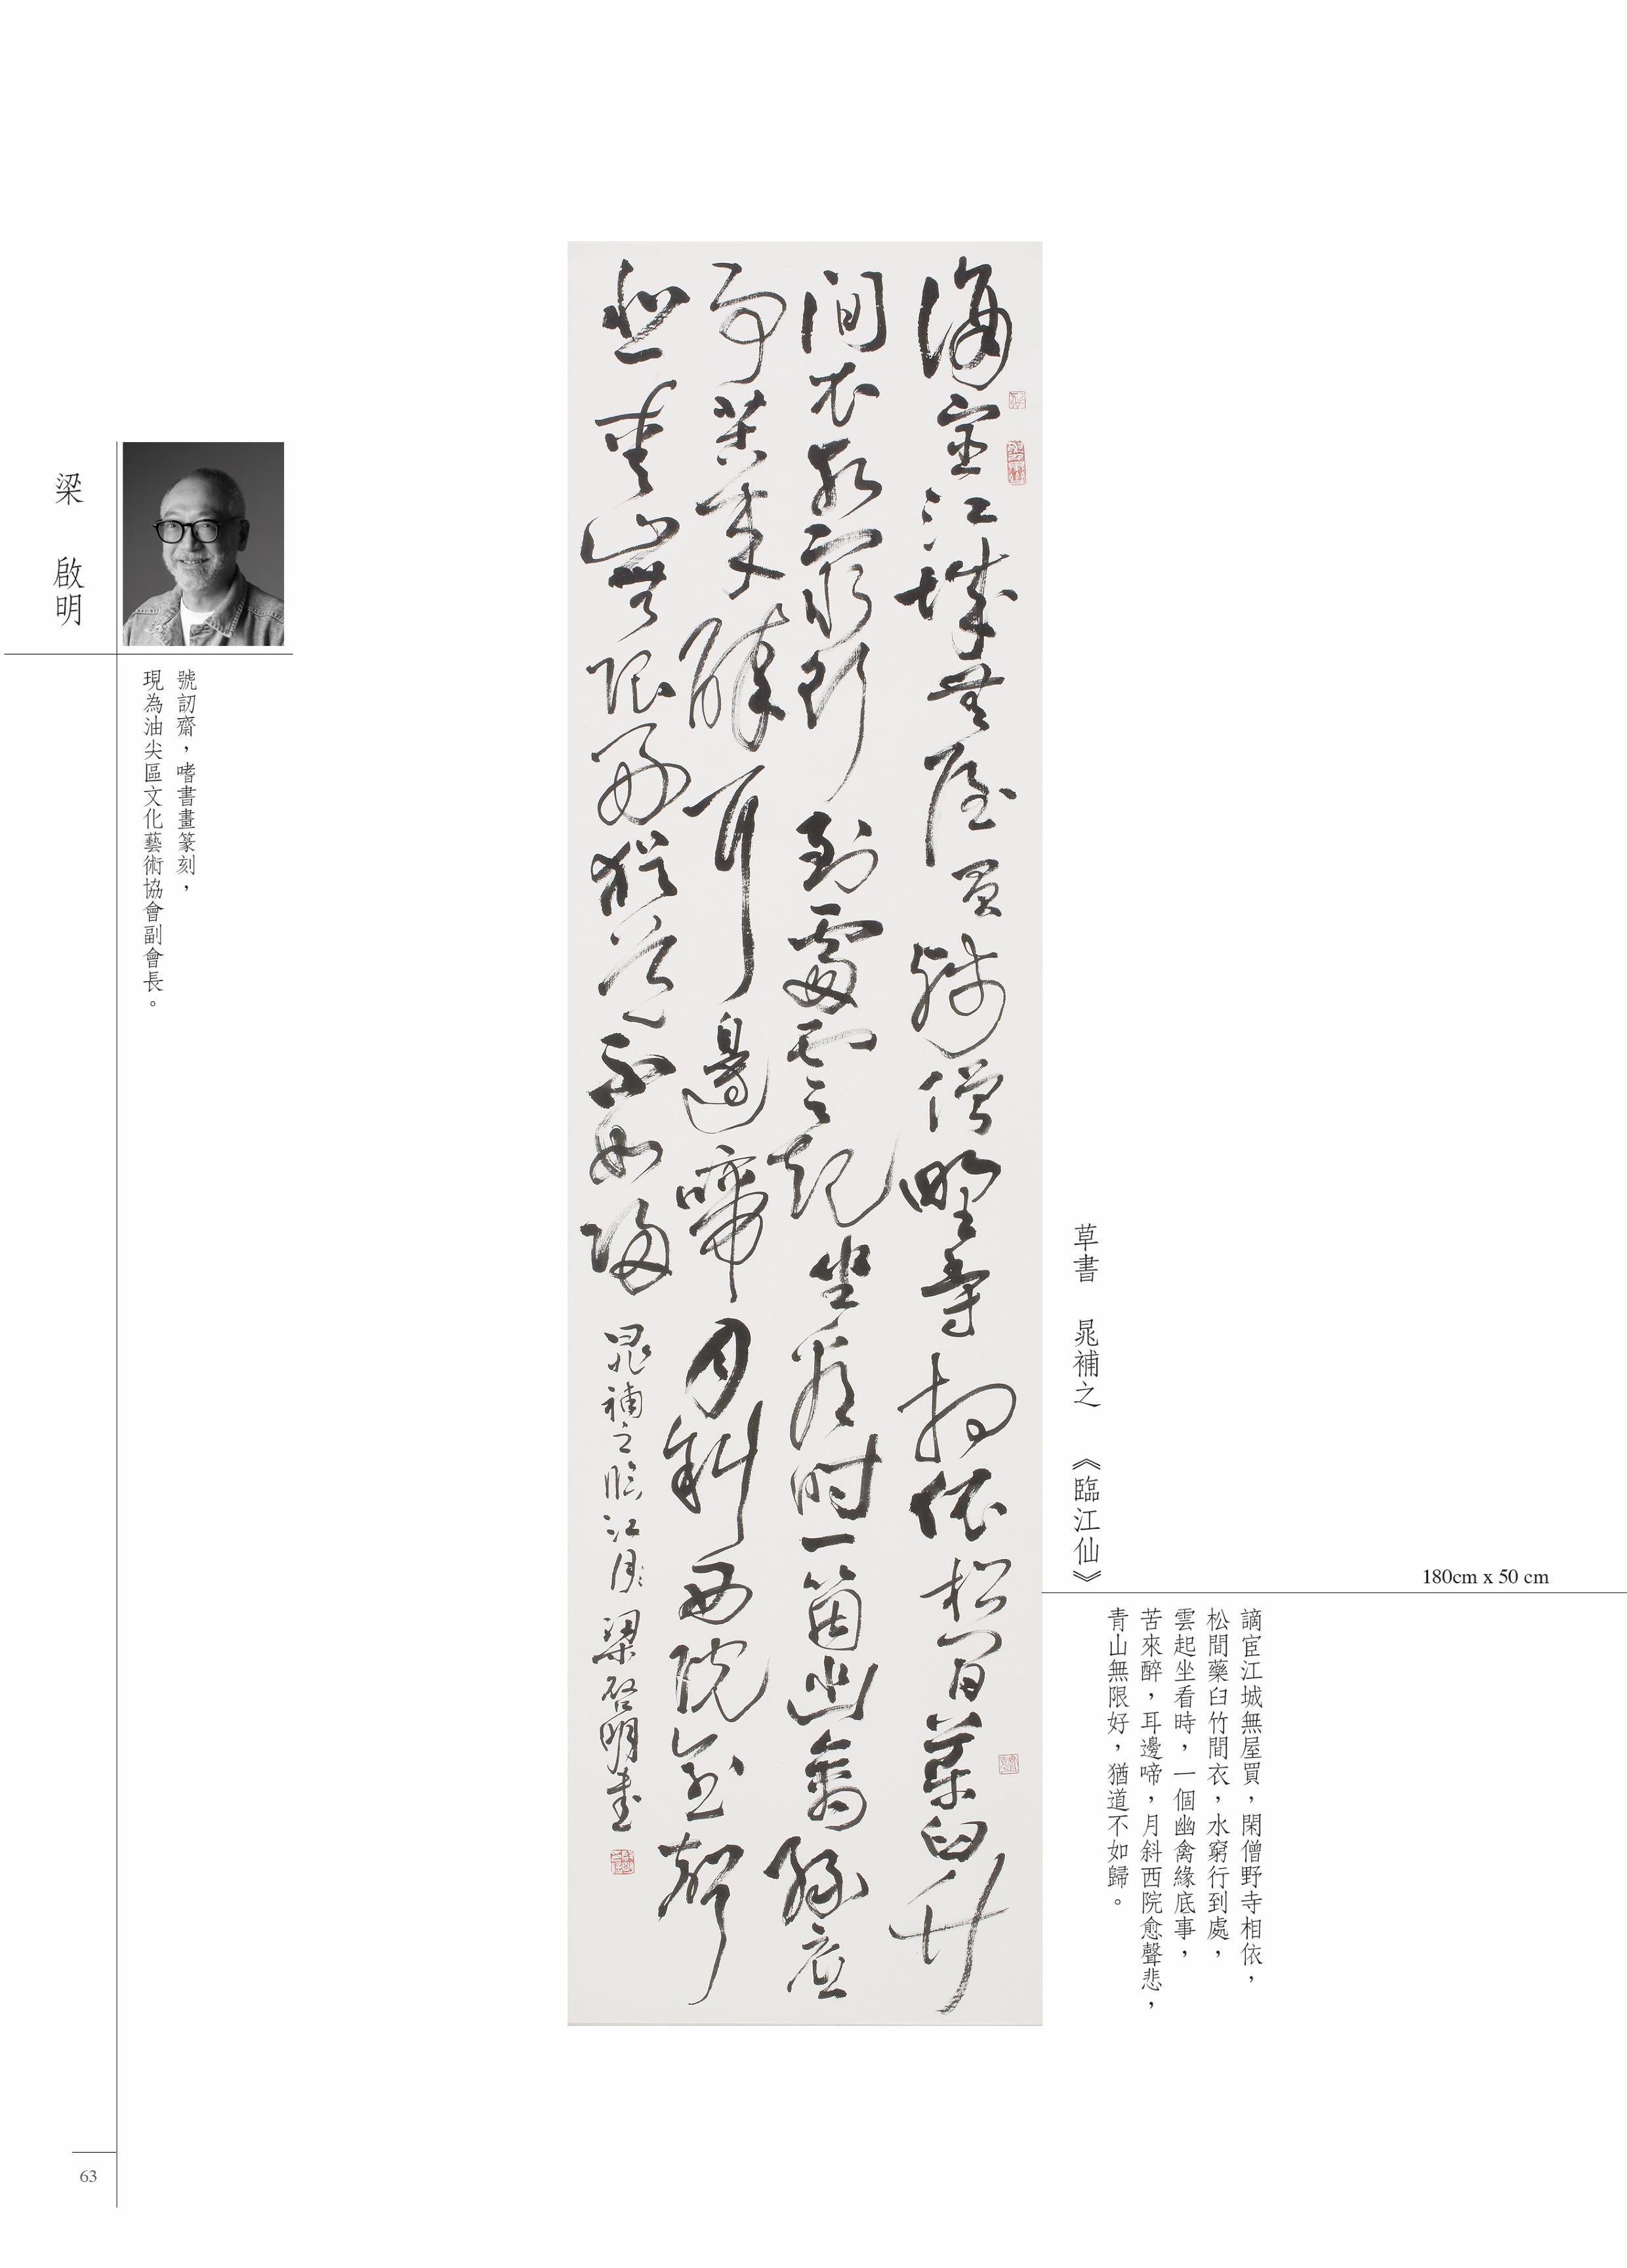 梁 啟明
號訒齋，嗜書畫篆刻，
現為油尖區文化藝術協會副會長。
謫宦江城無屋買殘僧野寺相依松間藥臼竹
間衣水窮行到處雲起坐看時一箇幽禽緣底
事苦來醉耳邊啼月斜西院愈聲
悲青山無限好猶道不如歸 晁補之臨江仙 梁啓明書
草書 晁補之 《臨江仙》
180cm x 50 cm
謫宦江城無屋買，閑僧野寺相依，
松間藥臼竹間衣，水窮行到處，
雲起坐看時，一個幽禽緣底事，
苦來醉，耳邊啼，月斜西院愈聲悲，
青山無限好，猶道不如歸。
63